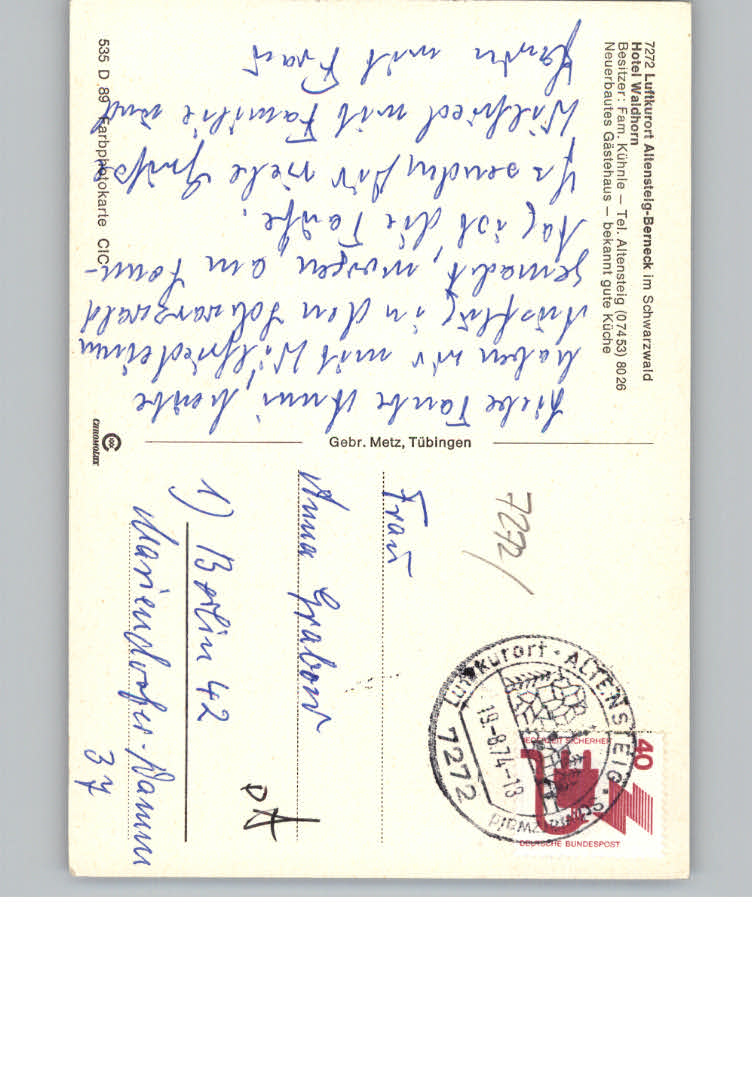 7272 Luftkurort Altensteig-Berneck im Schwarzwald
Hotel Waldhorn
Besitzer: Fam. Kühnle — Tel. Altensteig (07453) 8026
Neuerbautes Gästehaus — bekannt gute Küche
Liebe Tante Anni, heute
haben wir mit Wilfried einen
Ausflug in den Schwarzwald
gemacht, morgen, am Sonn-
tag ist die Taufe.
Es senden Dir viele Grüße
Wilfried mit Familie und
mit Frau
535 D 89 Farbphotokarte CIC
Gebr. Metz, Tübingen
CHROMOLUX
7272/
Frau
Anna Grabow
1) Berlin 42
Mariendorfer-Damm
37
Luftkurort · ALTENSTEIG · Schwarzwald
19.-8.74-18
7272
40
JEDERZEIT SICHERHEIT
DEUTSCHE BUNDESPOST